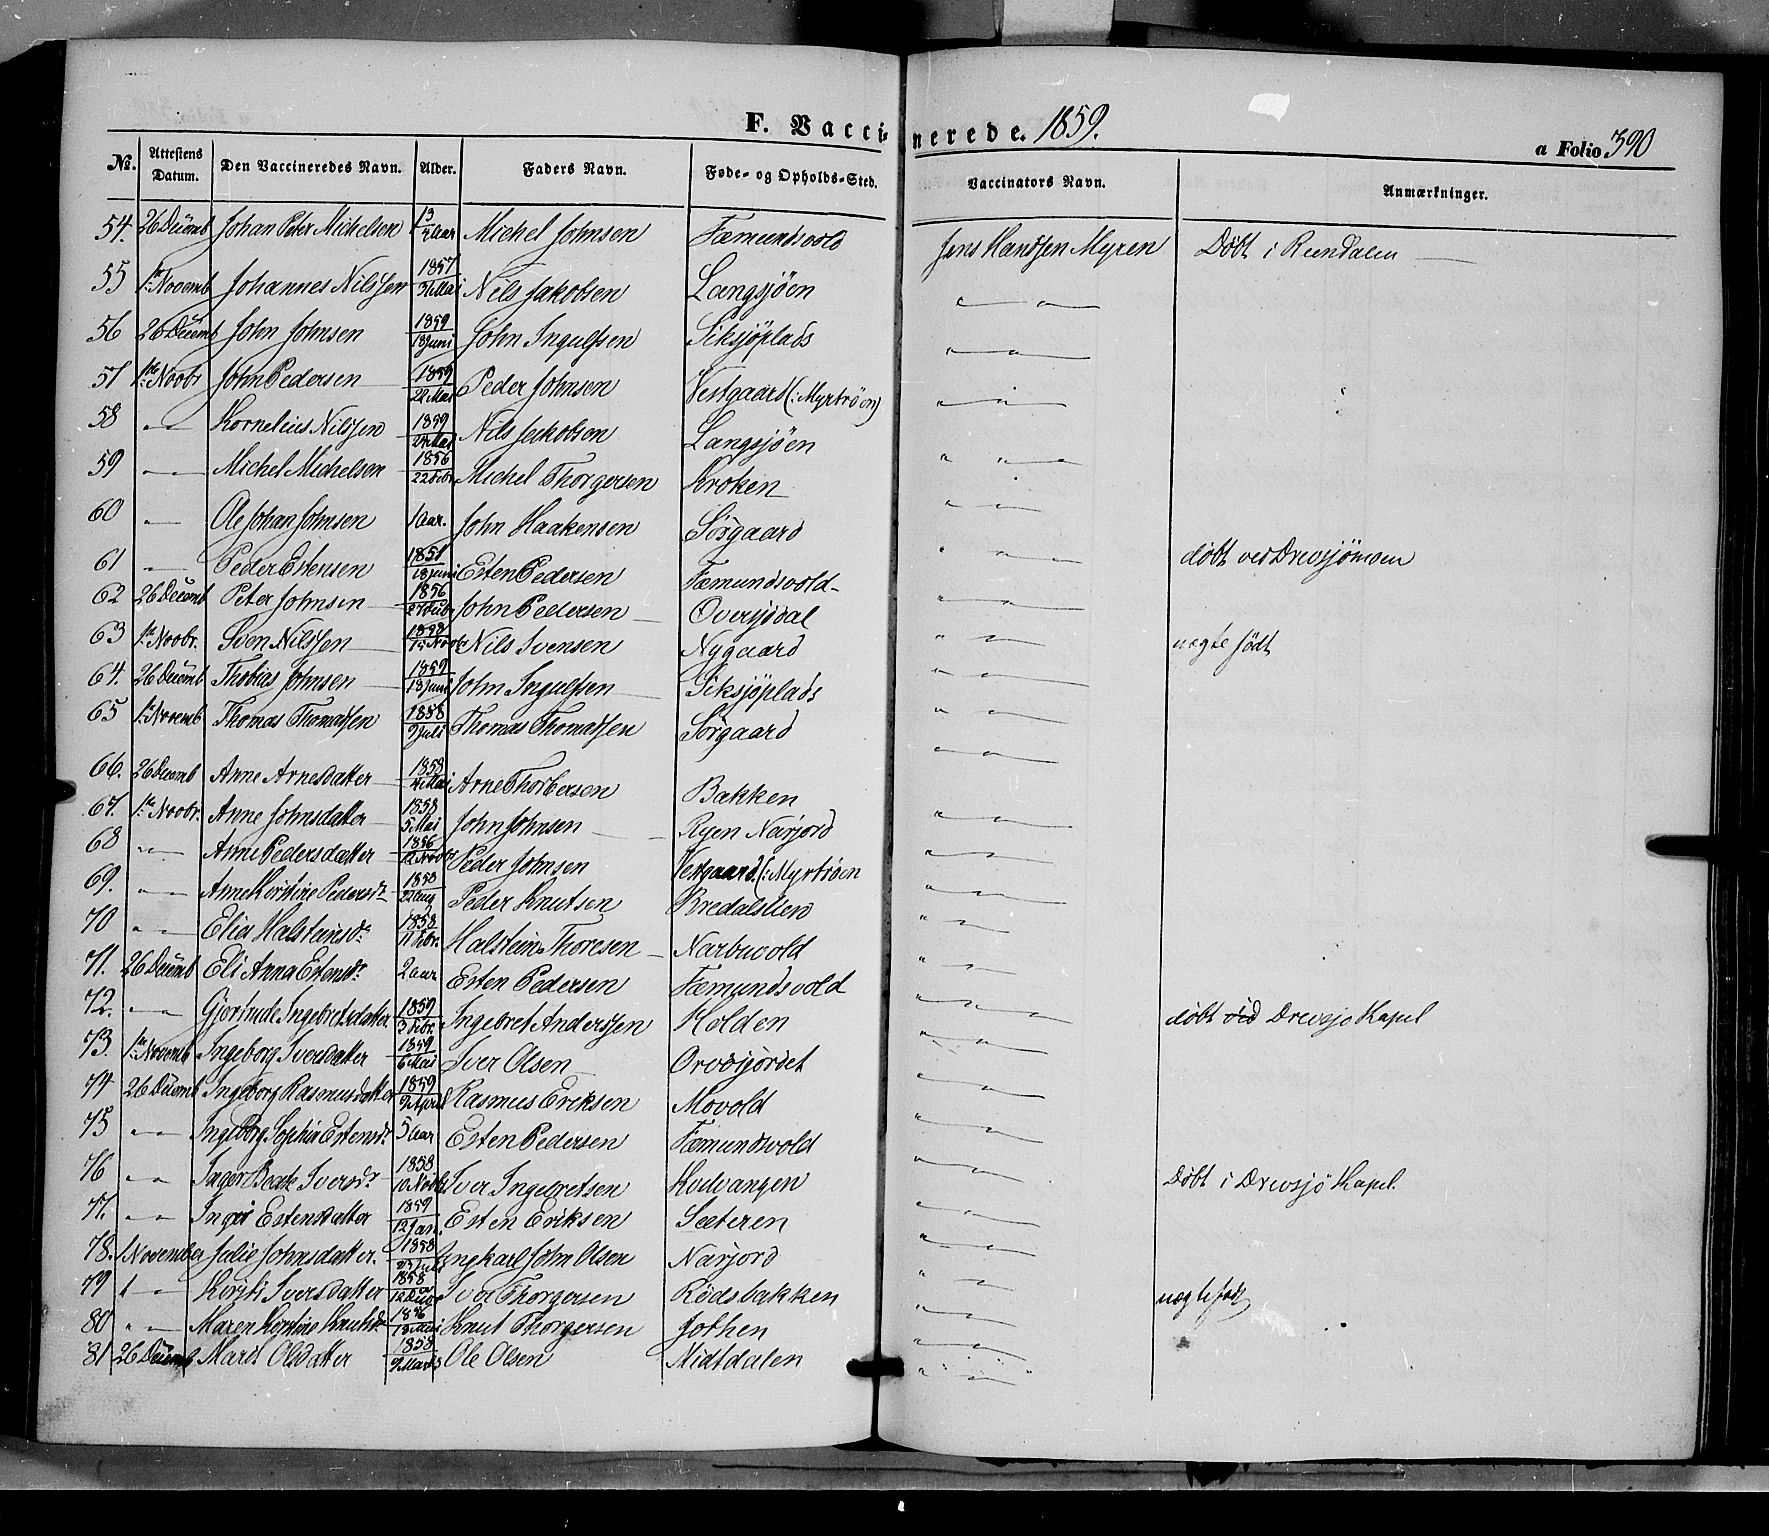 F. Vaccinerede. 1859.
a Folio 390
No. Attestens Datum. Den Vaccineredes Navn. Alder. Faders Navn. Føde- og Opholds-Sted. Vaccinators Navn. Anmærkninger.
54. 26 Decemb Johan Peter Michelsen Michel Johnsen Fæmundsvold Jens Handsen Myren Döbt i Rendalen
55 1ste Novemb Johannes Nilssen 1857 Mai Nils Jakobsen Langsjöen " "
56 26 Decemb John Johnsen 1859 18 Juni John Ingulfsen Siksjöplads " "
57 1ste Novbr John Pedersen 1859 22 Mai Peder Johnsen Vestgaard (: Myrtröen) " "
58 " Kornelius Nilssen 1859 24 Mai Nils Jakobsen Langsjöen " "
59 " Michel Michelsen 1856 22 Febr Michel Thorgersen Kroken " "
60 " Ole Johan Johnsen 1 Aar. John Haakensen Sörgaard " "
61 " Peder Estensen 1851 18 Juni Esten Pedersen Fæmundsvold " " döbt ved Drevsjömoen
62 26 Decemb Peter Johnsen 1856 John Pedersen " "
63 1ste Novbr. Sven Nilssen 1858 Novbr Nils Svensen Nygaard " " uægte födt
64. 26 Decemb Thobias Johnsen 1859 18 Juni John Ingulfsen Siksjöplads " "
65 1ste Novemb Thomas Thomassen 1858 9 Juli Thomas Thomassen Sörgaard " "
66. 26 Decemb Anne Arnesdatter 1858 Mai Arne Thorbersen Bakken " "
67. 1ste Novbr. Anne Johnsdatter 1858 5 Mai John Johnsen Ryen Narjord " "
68 " Anne Pedersdatter 1856 12 Novbr Peder Johnsen Vestgaard (: Myrtröen " "
69. " Anne Kirstine Pedersdr 1858 22 Aug Peder Knutsen " "
70 " Halsteinsdr 1858 11 Febr. Halstein Thoresen Narbuvold " "
71. 26 Decemb Eli Anna Estensdr 2 aar Esten Pedersen Fæmundsvold " "
72. " " Gjertrude Ingebretsdatter 1859 3 Febr. Ingebret Anderssen Holden " " döbt vid Drevsjo Kapel
73. 1ste Novemb Ingeborg Iversdatter 1859 6 Mai Iver Olsen " "
74 26 Decemb Ingeborg Rasmusdatter 1859 9 April Rasmus Eriksen Movold " "
75 " " Ingeborg Sophie Estensdr 5 Aar Esten Pedersen Fæmundsvold " "
76 " " Inger Beate Iversdr 1858 10 Novbr Iver Ingebretsen Kvilvangen " " Döbt i Drevsjö Kapel.
77. " " Estensdatter 1859 12 Jan. Esten Eriksen Sæteren " "
78. 1 November Julie Johnsdatter. 1858 Juli Ungkarl John Olsen Narjord " "
79 1 " Kirsti Iversdatter 1858 12 Iver Thorgersen Rödsbakken " " uægte föd
80 " " Maren Kirstine Knutsdr 18 Mai Knut Thorgersen Jothen " "
81 26 Decemb Marit Olsdatter 1858 9 Marts Ole Olsen Nidtdalen " "